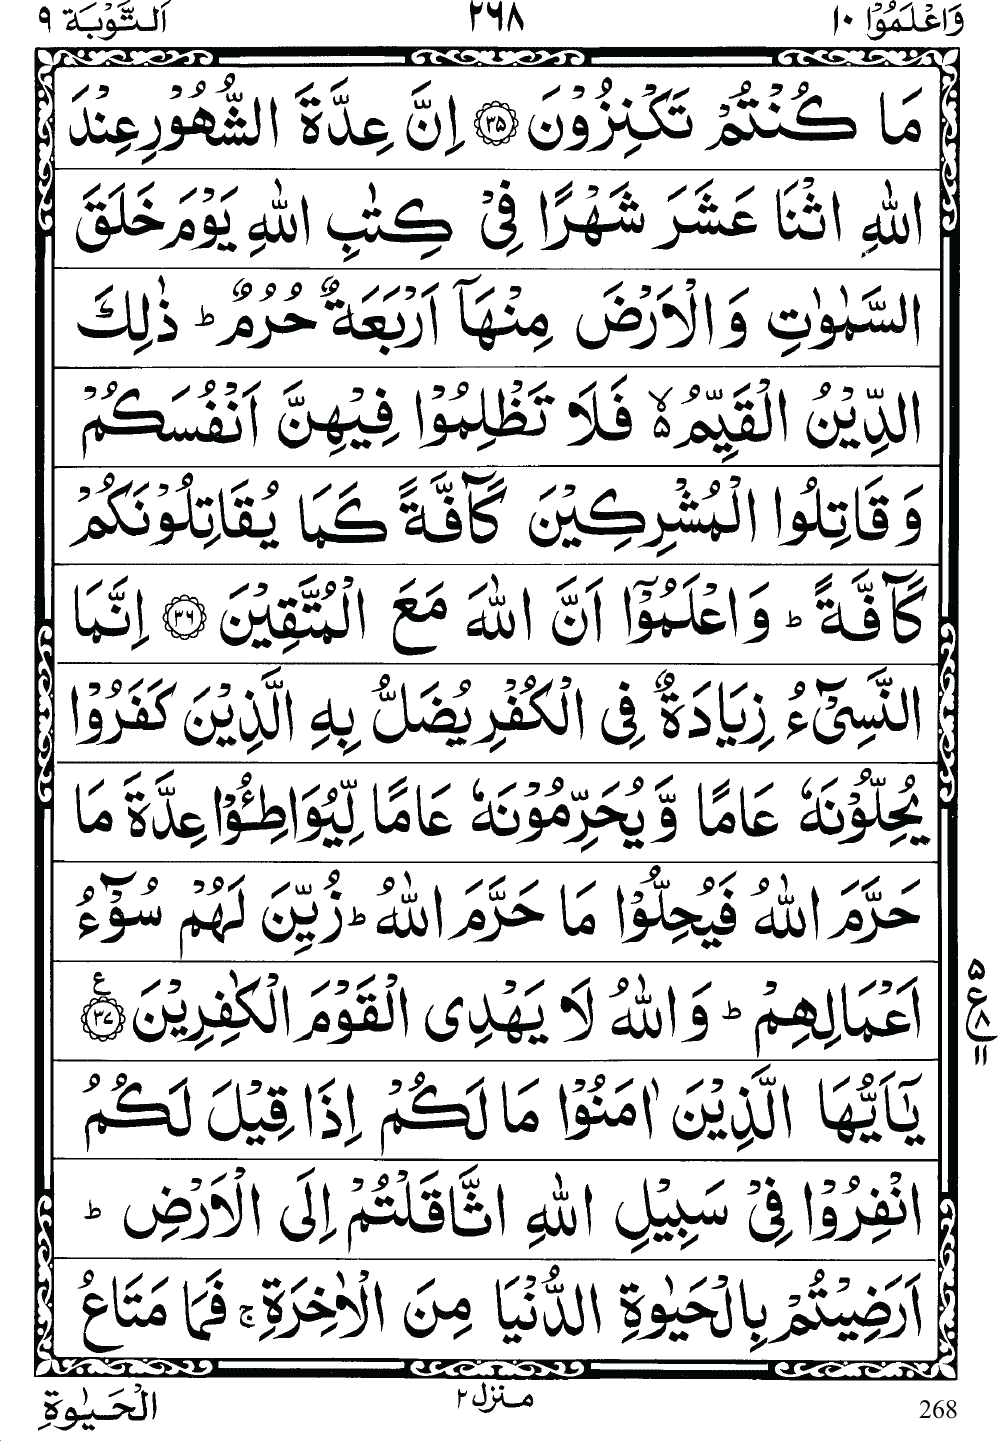 وَاعْلَمُوْٓا ١٠ ٢٦٨ اَلتَّوْبَة ٩
مَا كُنْتُمْ تَكْنِزُوْنَ ﴿۳۵﴾ اِنَّ عِدَّةَ الشُّهُوْرِ عِنْدَ
اللّٰهِ اثْنَا عَشَرَ شَهْرًا فِيْ كِتٰبِ اللّٰهِ يَوْمَ خَلَقَ
السَّمٰوٰتِ وَالْاَرْضَ مِنْهَآ اَرْبَعَةٌ حُرُمٌ ؕ ذٰلِكَ
الدِّيْنُ الْقَيِّمُ ۙ۬ فَلَا تَظْلِمُوْا فِيْهِنَّ اَنْفُسَكُمْ
وَقَاتِلُوا الْمُشْرِكِيْنَ كَآفَّةً كَمَا يُقَاتِلُوْنَكُمْ
كَآفَّةً ؕ وَاعْلَمُوْٓا اَنَّ اللّٰهَ مَعَ الْمُتَّقِيْنَ ﴿۳۶﴾ اِنَّمَا
النَّسِيْٓءُ زِيَادَةٌ فِي الْكُفْرِ يُضَلُّ بِهِ الَّذِيْنَ كَفَرُوْا
يُحِلُّوْنَهٗ عَامًا وَّيُحَرِّمُوْنَهٗ عَامًا لِّيُوَاطِـُٔوْا عِدَّةَ مَا
حَرَّمَ اللّٰهُ فَيُحِلُّوْا مَا حَرَّمَ اللّٰهُ ؕ زُيِّنَ لَهُمْ سُوْٓءُ
اَعْمَالِهِمْ ؕ وَاللّٰهُ لَا يَهْدِى الْقَوْمَ الْكٰفِرِيْنَ ﴿۳۷﴾ ع
۵ ع ۸ ١١
يٰٓاَيُّهَا الَّذِيْنَ اٰمَنُوْا مَا لَكُمْ اِذَا قِيْلَ لَكُمُ
انْفِرُوْا فِيْ سَبِيْلِ اللّٰهِ اثَّاقَلْتُمْ اِلَى الْاَرْضِ ؕ
اَرَضِيْتُمْ بِالْحَيٰوةِ الدُّنْيَا مِنَ الْاٰخِرَةِ ۚ فَمَا مَتَاعُ
268 منزل ٢ الْحَيٰوةِ